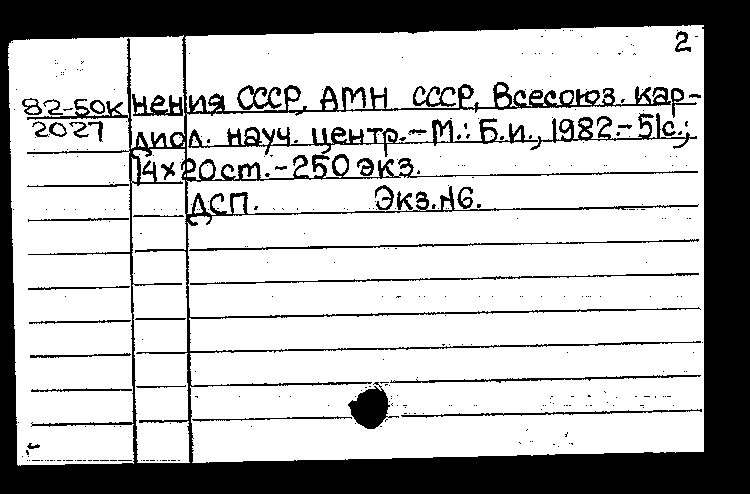 2
82-50к нения СССР, АМН СССР, Всесоюз. кар-
2027 диол. науч. центр.-М.: Б.и., 1982.-51с.;
14×20cm.-250 экз.
ДСП. Экз.№6.